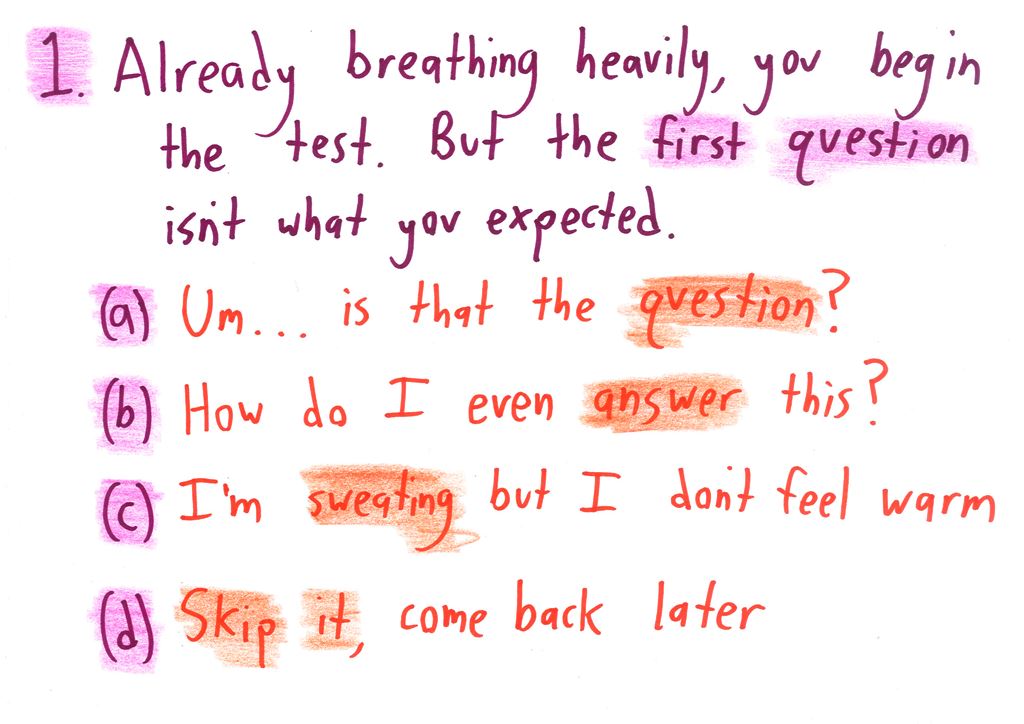 1. Already breathing heavily, you begin
the test. But the first question
isn't what you expected.
(a) Um... is that the question?
(b) How do I even answer this?
(c) I'm sweating but I don't feel warm
(d) Skip it, come back later